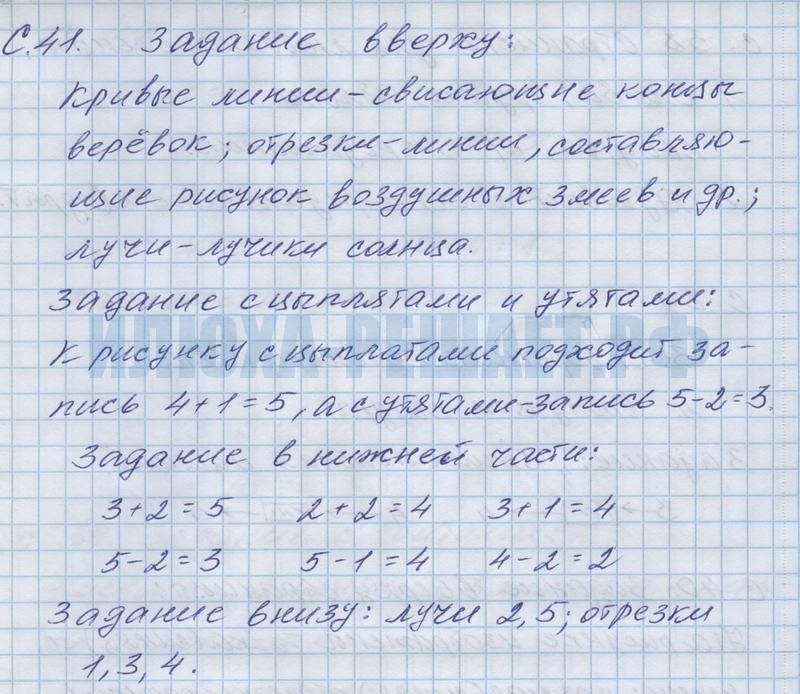 С.41. Задание вверху:
Кривые линии - свисающие концы
верёвок; отрезки - линии, составляю-
щие рисунок воздушных змеев и др.;
лучи - лучики солнца.
Задание с цыплятами и утятами:
К рисунку с цыплатами подходит за-
пись 4+1=5, а с утятами - запись 5-2=3.
ИЛЮХА РЕШАЕТ.РФ
Задание в нижней части:
3+2=5 2+2=4 3+1=4
5-2=3 5-1=4 4-2=2
Задание внизу: лучи 2,5; отрезки
1, 3, 4.